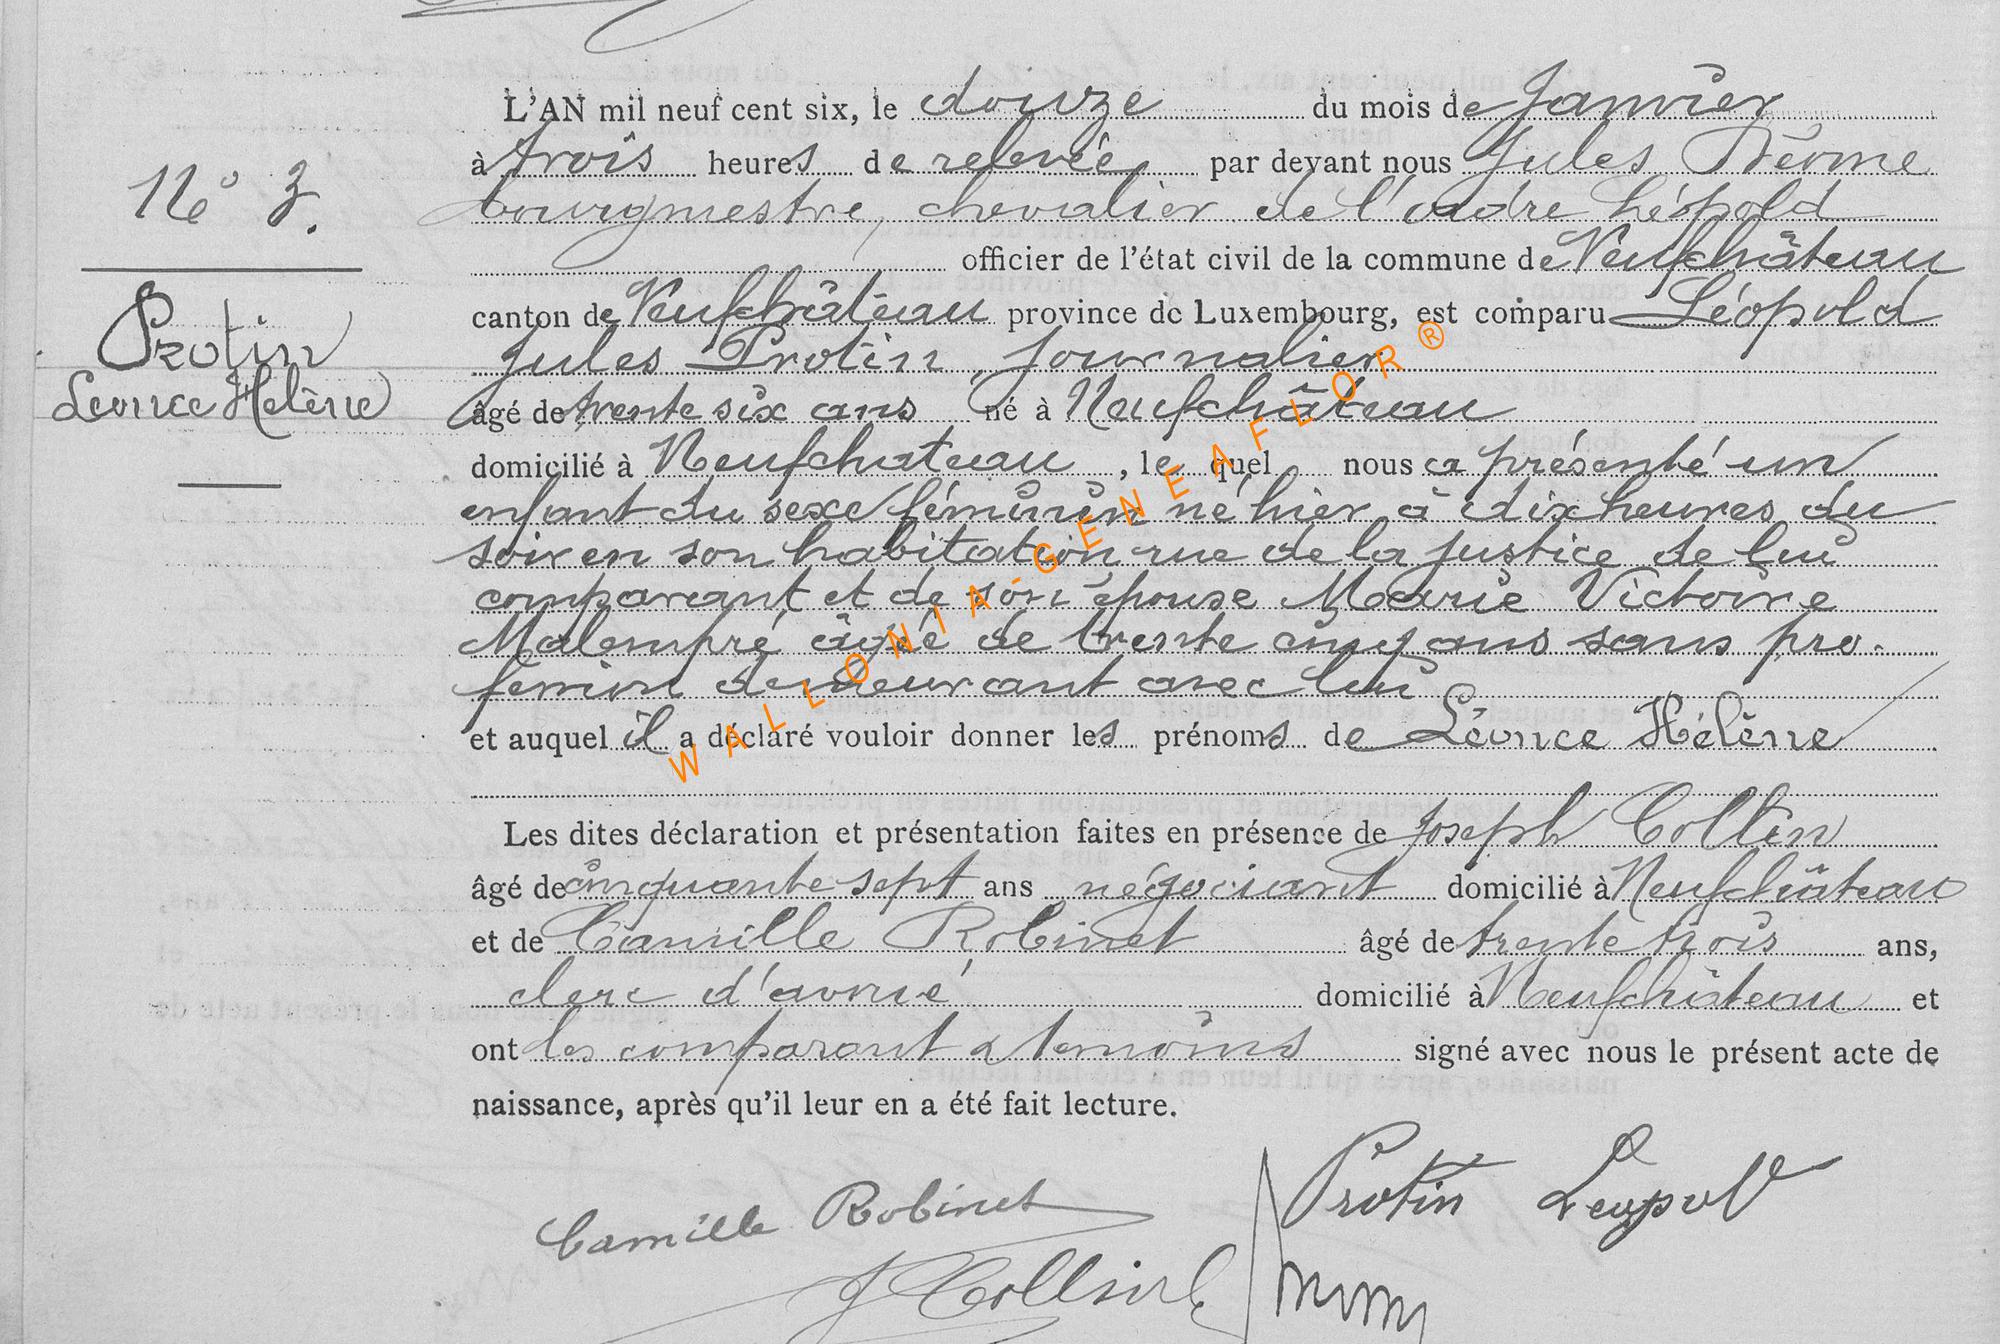 L'AN mil neuf cent six, le douze du mois de Janvier
à trois heures de relevée par devant nous Jules
bourgmestre, chevalier de l'ordre Léopold
officier de l'état civil de la commune de Neufchâteau
N° 3.
canton de Neufchâteau province de Luxembourg, est comparu Léopold
Protin
Jules Protin, journalier
Leonce Helène
âgé de trente six ans né à Neufchâteau
domicilié à Neufchateau, le quel nous a présenté un
enfant du sexe féminin né hier à dix heures du
soir en son habitation rue de la justice de lui
comparant et de son épouse Marie Victoire
Malempré âgée de trente cinq ans sans pro-
fession demeurant avec lui
et auquel il a déclaré vouloir donner les prénoms de Léonce Hélène
Les dites déclaration et présentation faites en présence de Joseph Collin
âgé de cinquante sept ans négociant domicilié à Neufchâteau
et de Camille Robinet âgé de trente trois ans,
clerc d'avoué domicilié à Neufchâteau et
ont les comparant & temoins signé avec nous le présent acte de
naissance, après qu'il leur en a été fait lecture.
Protin Leopold
Camille Robinet
J Collin
WALLONIA-GENEAFLOR®